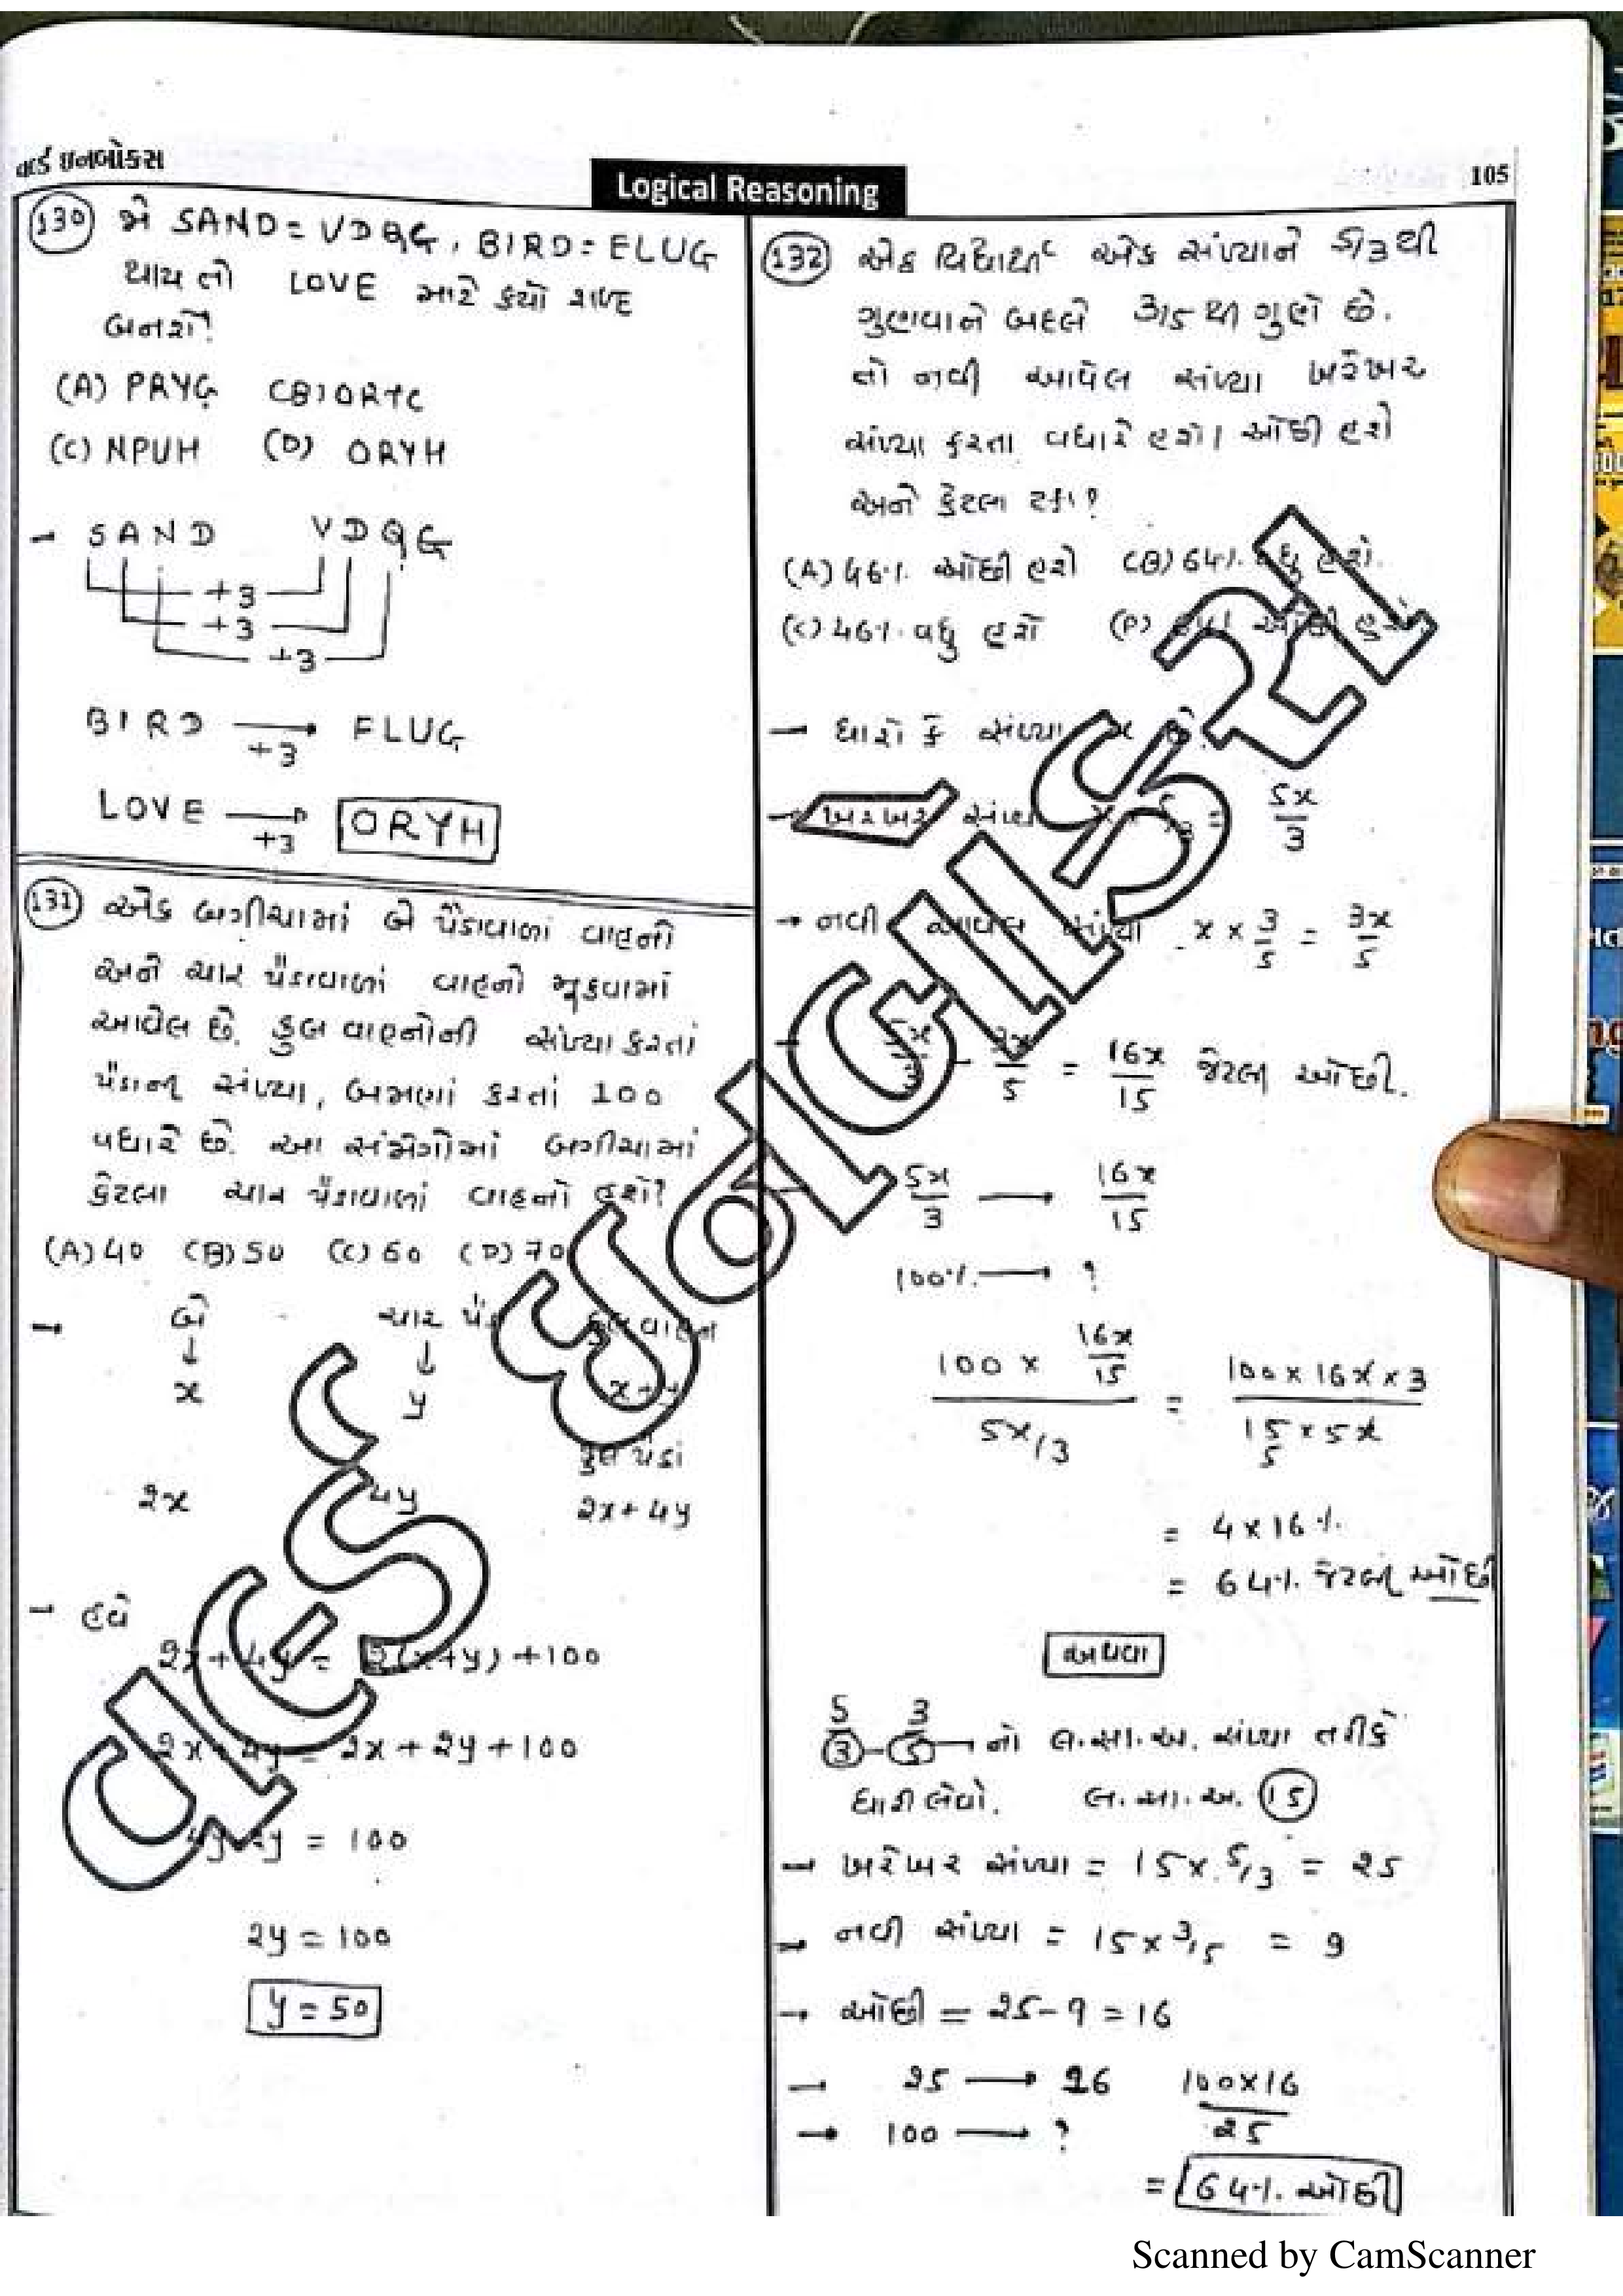 વર્લ્ડ ઇનબોક્સ
Logical Reasoning
105
(130) જો SAND = VDQG, BIRD = ELUG
થાય તો LOVE માટે કયો શબ્દ
બનશે?
(A) PRYG (B) ORTC
(C) NPUH (D) ORYH
- SAND VDQG
+3
+3
+3
BIRD → ELUG
+3
LOVE → ORYH
+3
(131) એક બગીચામાં બે પૈડાવાળાં વાહનો
અને ચાર પૈડાવાળાં વાહનો મૂકવામાં
આવેલ છે. કુલ વાહનોની સંખ્યા કરતાં
પૈડાની સંખ્યા, બમણાં કરતાં 100
વધારે છે. આ સંજોગોમાં બગીચામાં
કેટલા ચાર પૈડાવાળાં વાહનો હશે?
(A) 40 (B) 50 (C) 60 (D) 70
→ બે ચાર પૈડા કુલ વાહન
↓ ↓
x y x+y
કુલ પૈડાં
2x 4y 2x+4y
- હવે
2x+4y = 2(x+y)+100
2x+4y = 2x+2y+100
4y-2y = 100
2y = 100
y = 50
(132) એક વિદ્યાર્થી એક સંખ્યાને 5/3 થી
ગુણવાને બદલે 3/5 થી ગુણે છે.
તો નવી આવેલ સંખ્યા ખરેખર
સંખ્યા કરતા વધારે હશે / ઓછી હશે
અને કેટલા ટકા?
(A) 46% ઓછી હશે (B) 64% વધુ હશે.
(C) 46% વધુ હશે (D) 64% ઓછી હશે
- ધારો કે સંખ્યા x છે.
→ ખરેખર સંખ્યા x × 5/3 = 5x/3
→ નવી આવેલ સંખ્યા = x × 3/5 = 3x/5
- 5x/3 - 3x/5 = 16x/15 જેટલી ઓછી.
5x/3 → 16x/15
100% → ?
100 × 16x/15 / 5x/3 = 100×16x×3 / 15×5x
5
= 4×16%
= 64% જેટલી ઓછી
અથવા
5/3 - 3/5 → નો લ.સા.અ. સંખ્યા તરીકે
ધારી લેવો. લ.સા.અ. (15)
→ ખરેખર સંખ્યા = 15 × 5/3 = 25
→ નવી સંખ્યા = 15 × 3/5 = 9
→ ઓછી = 25-9 = 16
→ 25 → 16 100×16/25
→ 100 → ?
= 64% ઓછી
Scanned by CamScanner